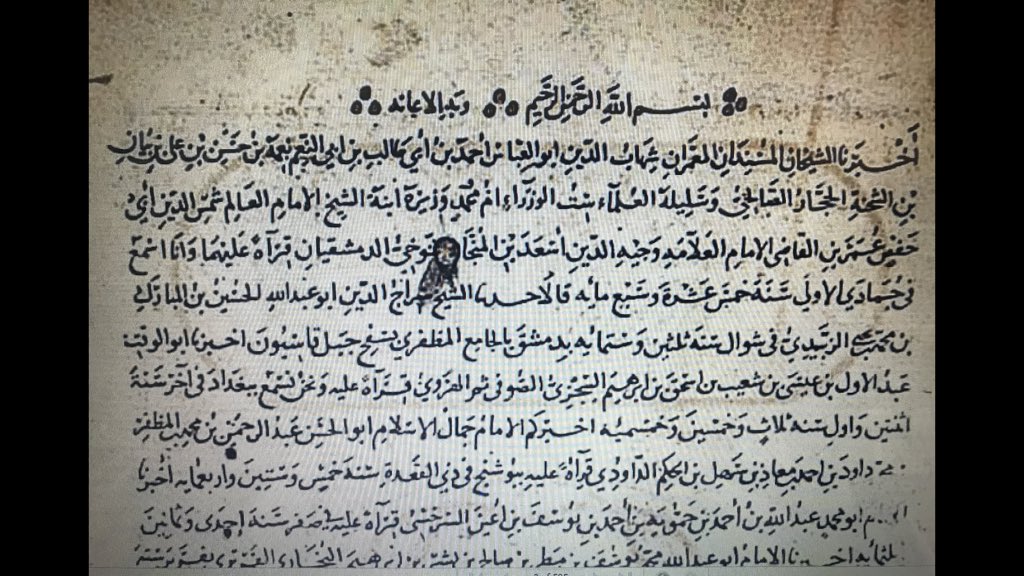 بسم الله الرحمن الرحيم وبه الاعانه
أخبرنا الشيخان المسندان المعمران شهاب الدين ابو العباس أحمد بن أبي طالب بن ابي النعم نعمة بن حسن بن علي بن بيان
بن الشحنة الحجار الصالحي وسليلة العلماء ست الوزراء ام محمد وزيرة ابنة الشيخ الإمام العالم شمس الدين أبي
حفص عمر بن القاضي الامام العلامه وجيه الدين أسعد بن المنجا التنوخي الدمشقيان قراة عليهما وانا اسمع
في جمادي الاولى سنة خمس عشرة وسبع مائه قالا حدثنا الشيخ سراج الدين ابو عبد الله الحسين بن المبارك
بن محمد الزبيدي في شوال سنه ثلثين وستمائه بدمشق بالجامع المظفري بسفح جبل قاسيون اخبرنا ابو الوقت
عبد الاول بن عيسى بن شعيب بن اسحق بن ابرهيم السجزي الصوفي ثم الهروي قراة عليه ونحن نسمع ببغداد في آخر سنة
اثنتين واول سنه ثلاث وخمسين وخمسميه اخبركم الامام جمال الاسلام ابو الحسن عبد الرحمن بن محمد بن المظفر
داود بن احمد بن معاذ بن سهل بن الحكم الداودي قراة عليه ببوشنج في ذي القعدة سنة خمس وستين واربعمايه أخبرنا
ابو محمد عبد الله بن أحمد بن حمويه بن أحمد بن يوسف بن اعين السرخسي قراة عليه في صفر سنة إحدى وثمانين
وثلثمائه اخبرنا الامام ابو عبد الله محمد بن يوسف بن مطر بن صالح بن بشر بن ابرهيم البخاري الفربري بفربر سنة